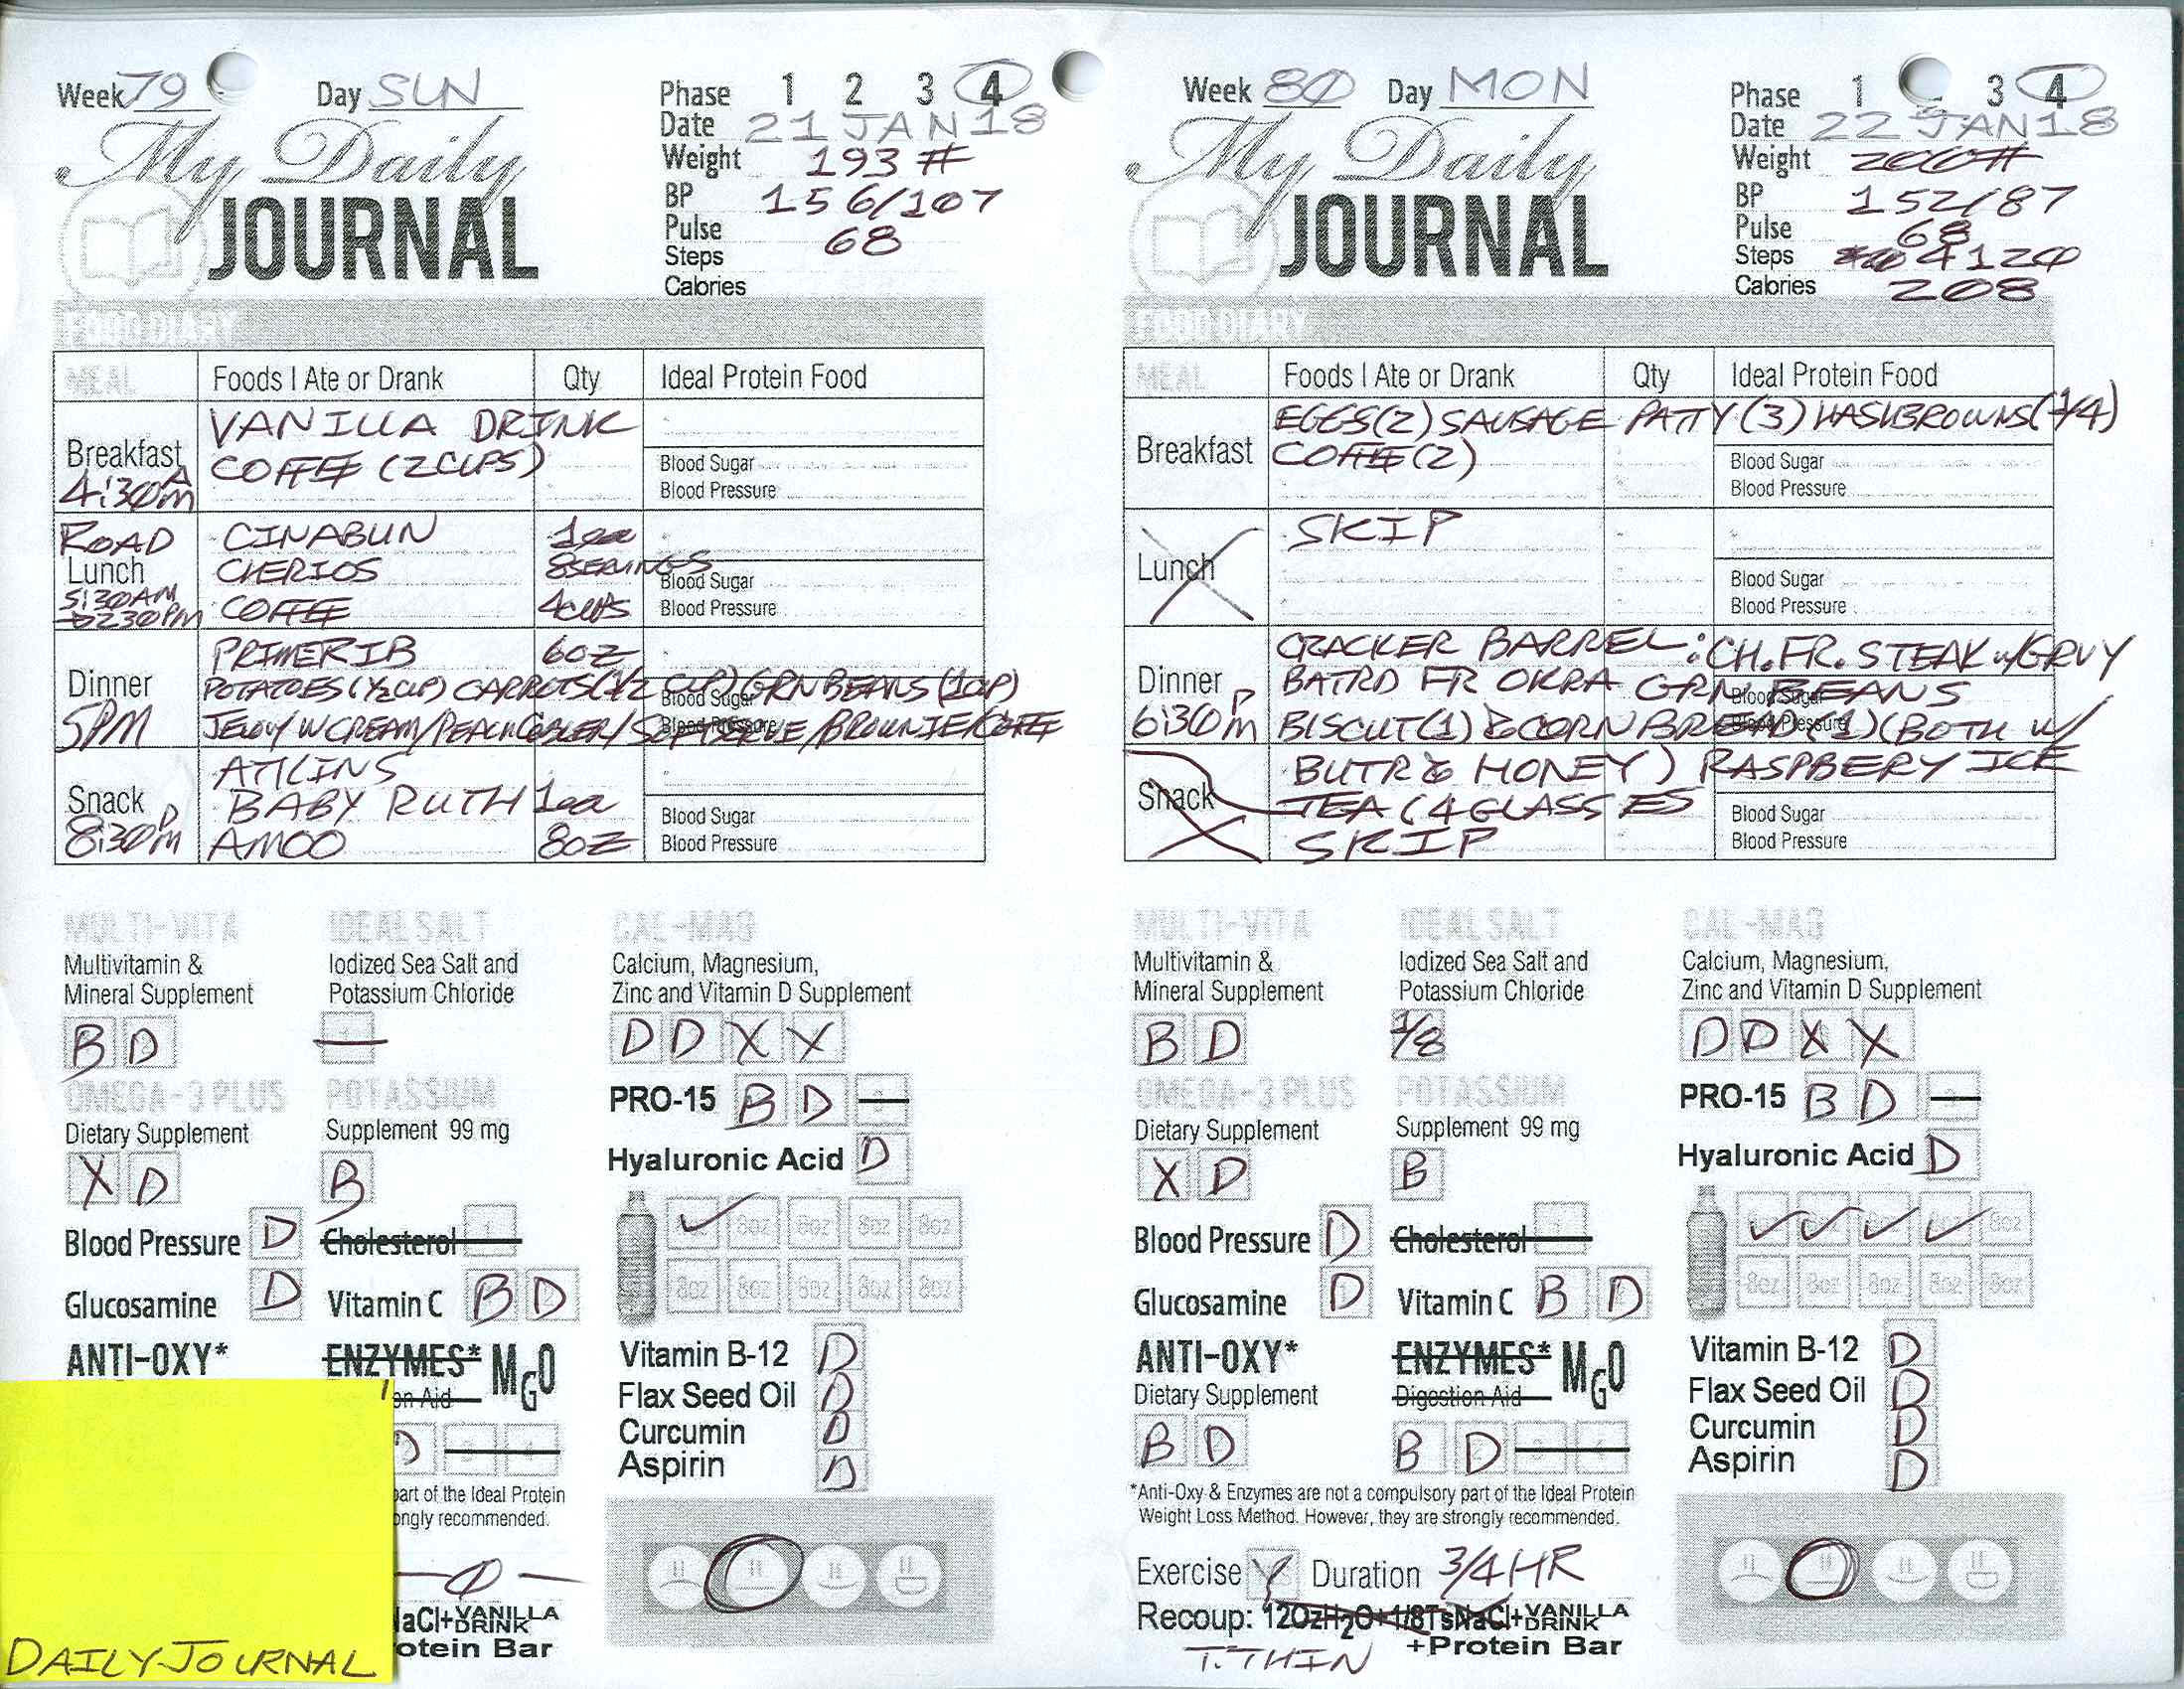 Week 79 Day SUN
Phase 1 2 3 4
Date 21 JAN 18
Weight 193 #
BP 156/107
Pulse 68
Steps
Calories
My Daily
JOURNAL
FOOD DIARY
MEAL Foods I Ate or Drank Qty Ideal Protein Food
Breakfast 4:30AM
VANILLA DRINK
COFFEE (2 CUPS)
Blood Sugar
Blood Pressure
ROAD Lunch 5:30AM 230PM
CINABUN 1ea
CHERIOS 8SERINGS
COFFEE 4CUPS
Blood Sugar
Blood Pressure
Dinner 5PM
PRIMERIB 6OZ
POTATOES (1/2 CUP) CARROTS (1/2 CUP) GRN BEANS (1CUP)
JELLOY W CREAM/PEACH COBLER/SOFTSERVE/BROWNIE/COFFEE
Blood Sugar
Blood Pressure
Snack 8:30PM
ATKINS
BABY RUTH 1ea
AMOO 8OZ
Blood Sugar
Blood Pressure
MULTI-VITA IDEAL SALT CAL-MAG
Multivitamin & Iodized Sea Salt and Calcium, Magnesium,
Mineral Supplement Potassium Chloride Zinc and Vitamin D Supplement
B D D D X X
OMEGA-3 PLUS POTASSIUM PRO-15 B D
Dietary Supplement Supplement 99 mg
X D B Hyaluronic Acid D
8oz 8oz 8oz 8oz
8oz 8oz 8oz 8oz 8oz
Blood Pressure D Cholesterol 1
Glucosamine D Vitamin C B D
ANTI-OXY* ENZYMES* MGO
on Aid
D
Vitamin B-12 D
Flax Seed Oil D
Curcumin D
Aspirin D
part of the Ideal Protein
ongly recommended.
0
NaCl+VANILLA DRINK
otein Bar
DAILY JOURNAL
Week 80 Day MON
Phase 1 3 4
Date 22 JAN 18
Weight 200#
BP 152/87
Pulse 68
Steps 4120
Calories 208
My Daily
JOURNAL
FOOD DIARY
MEAL Foods I Ate or Drank Qty Ideal Protein Food
Breakfast
EGGS(2) SAUSAGE PATTY (3) HASHBROWNS (1/4)
COFFEE (2)
Blood Sugar
Blood Pressure
Lunch
SKIP
Blood Sugar
Blood Pressure
Dinner 6:30PM
CRACKER BARREL: CH. FR. STEAK w/GRVY
BATRD FR OKRA GRN BEANS
BISCUIT(1) & CORN BREAD (1) (BOTH w/
Blood Sugar
Blood Pressure
Snack
BUTR & HONEY) RASPBERY ICE
TEA (4 GLASSES
SKIP
Blood Sugar
Blood Pressure
MULTI-VITA IDEAL SALT CAL-MAG
Multivitamin & Iodized Sea Salt and Calcium, Magnesium,
Mineral Supplement Potassium Chloride Zinc and Vitamin D Supplement
B D 1/8 D D X X
OMEGA-3 PLUS POTASSIUM PRO-15 B D
Dietary Supplement Supplement 99 mg
X D B Hyaluronic Acid D
8oz
8oz 8oz 8oz 8oz 8oz
Blood Pressure D Cholesterol
Glucosamine D Vitamin C B D
ANTI-OXY* ENZYMES* MGO
Dietary Supplement Digestion Aid
B D B D
Vitamin B-12 D
Flax Seed Oil D
Curcumin D
Aspirin D
*Anti-Oxy & Enzymes are not a compulsory part of the Ideal Protein
Weight Loss Method. However, they are strongly recommended.
Exercise Y Duration 3/4 HR
Recoup: 12OzH2O+1/8TsNaCl+VANILLA DRINK
+Protein Bar
T.THIN